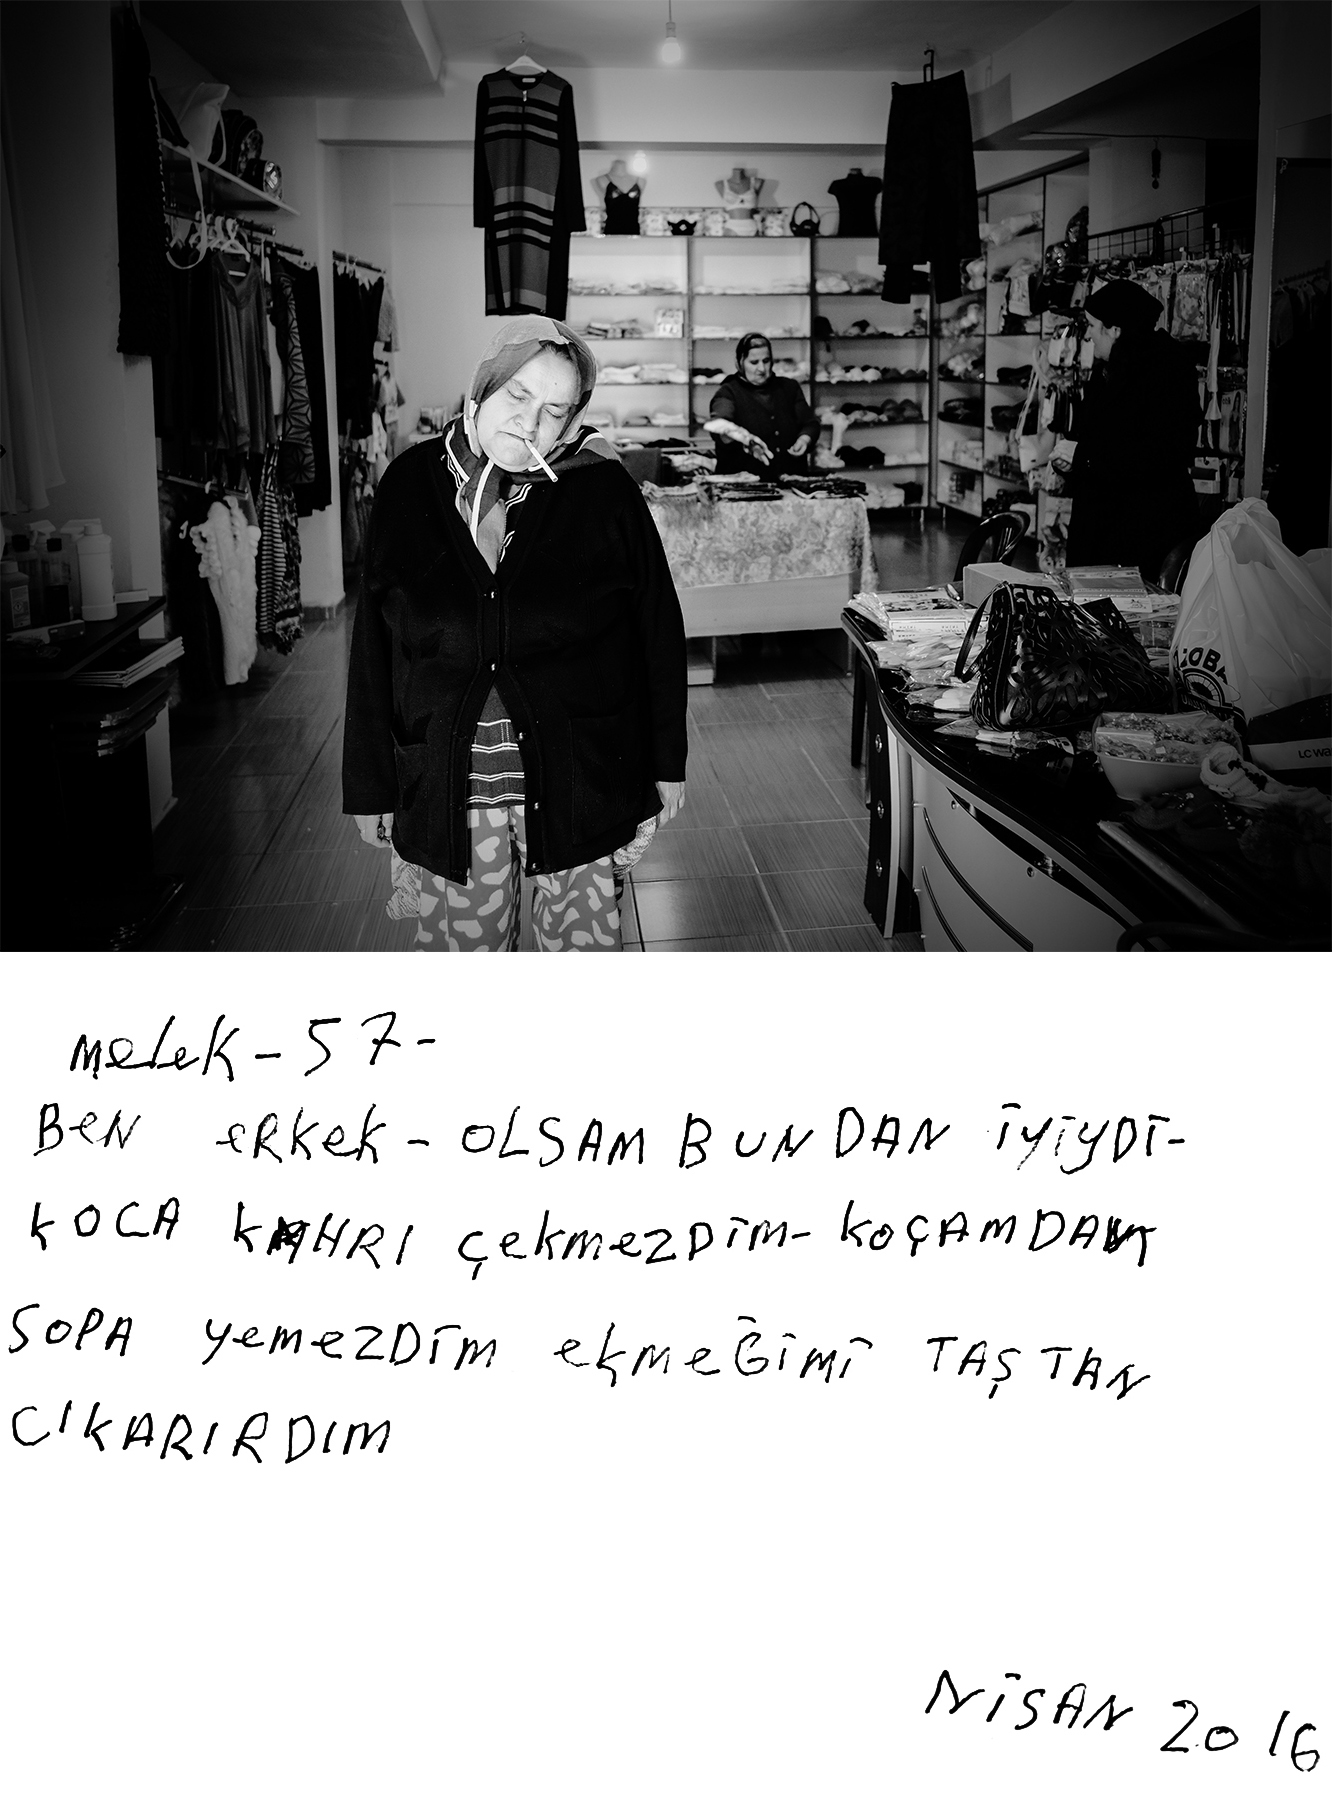 melek - 57 -
BEN ERKEK - OLSAM BUNDAN İYİYDİ -
KOCA KAHRI ÇEKMEZDİM - KOÇAMDAN
SOPA YEMEZDİM EKMEĞİMİ TAŞTAN
CIKARIRDIM
NİSAN 2016
LC Wa